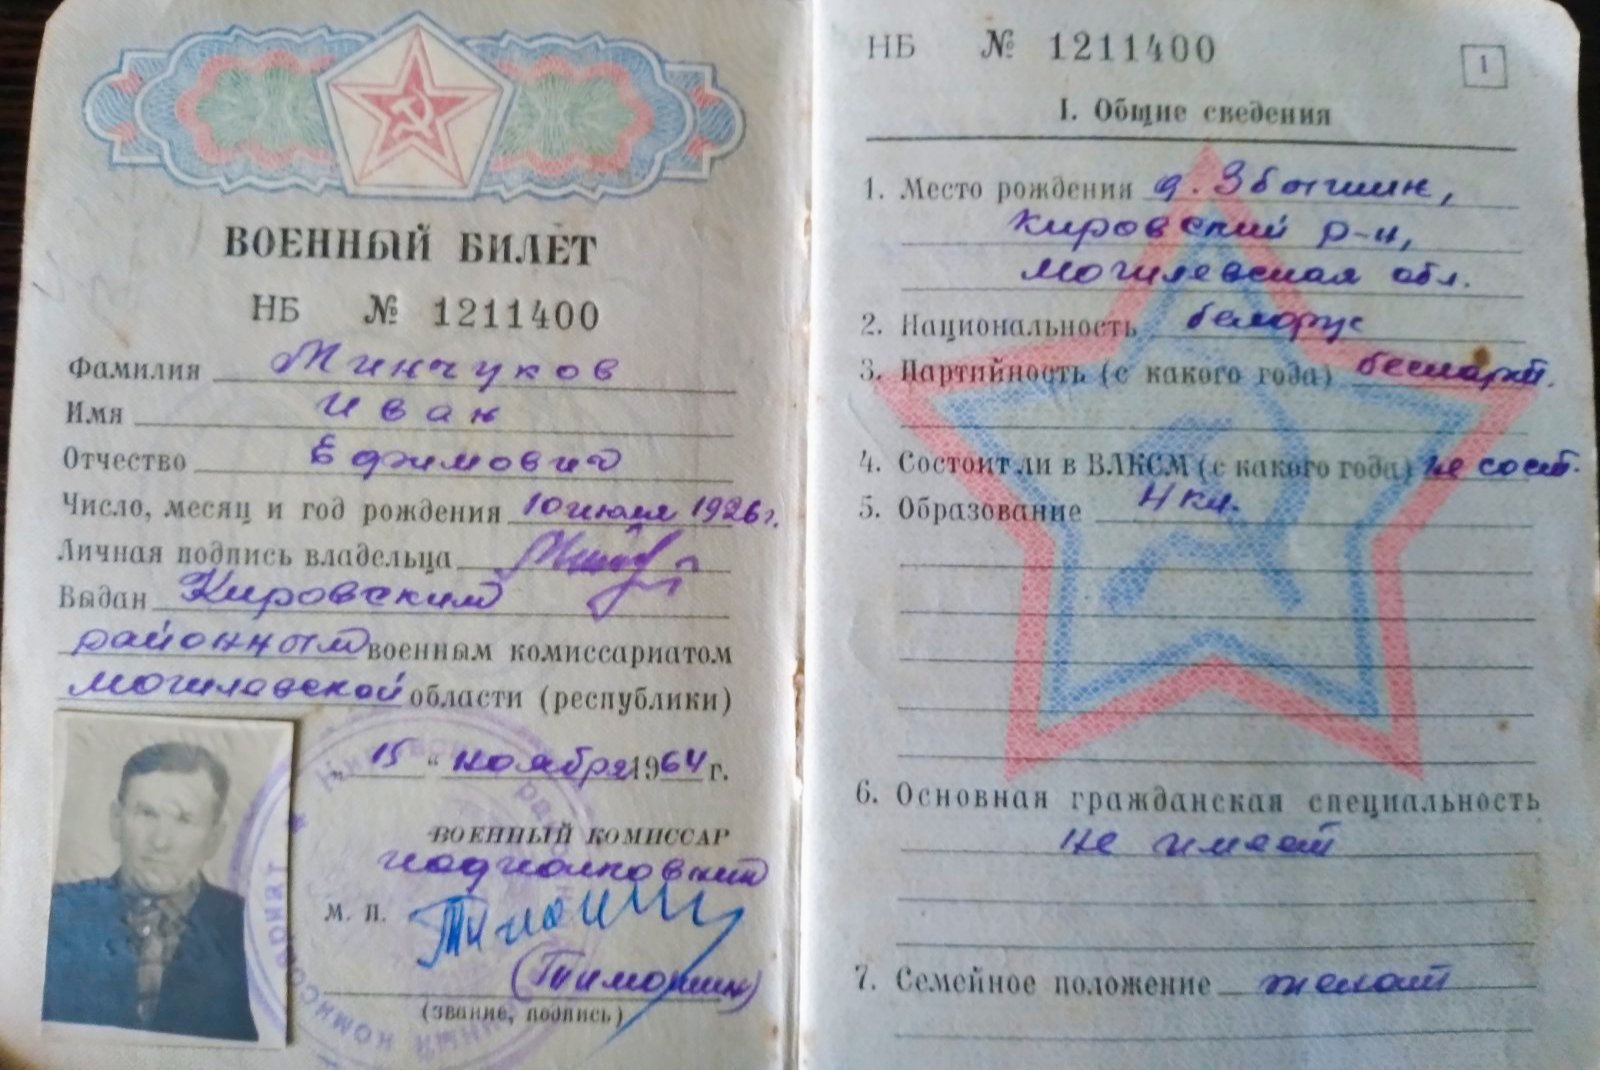 ВОЕННЫЙ БИЛЕТ
НБ № 1211400
Фамилия Минчуков
Имя Иван
Отчество Ефимович
Число, месяц и год рождения 10 июля 1926 г.
Личная подпись владельца
Выдан Кировским
районным военным комиссариатом
Могилевской области (республики)
„15“ ноября 1964 г.
ВОЕННЫЙ КОМИССАР
подполковник
М. П.
(Тимошин)
(звание, подпись)
военный комиссариат
НБ № 1211400
1
I. Общие сведения
1. Место рождения д. Збышин,
Кировский р-н,
Могилевская обл.
2. Национальность белорус
3. Партийность (с какого года) беспарт.
4. Состоит ли в ВЛКСМ (с какого года) не сост.
5. Образование 4 кл.
6. Основная гражданская специальность
не имеет
7. Семейное положение женат